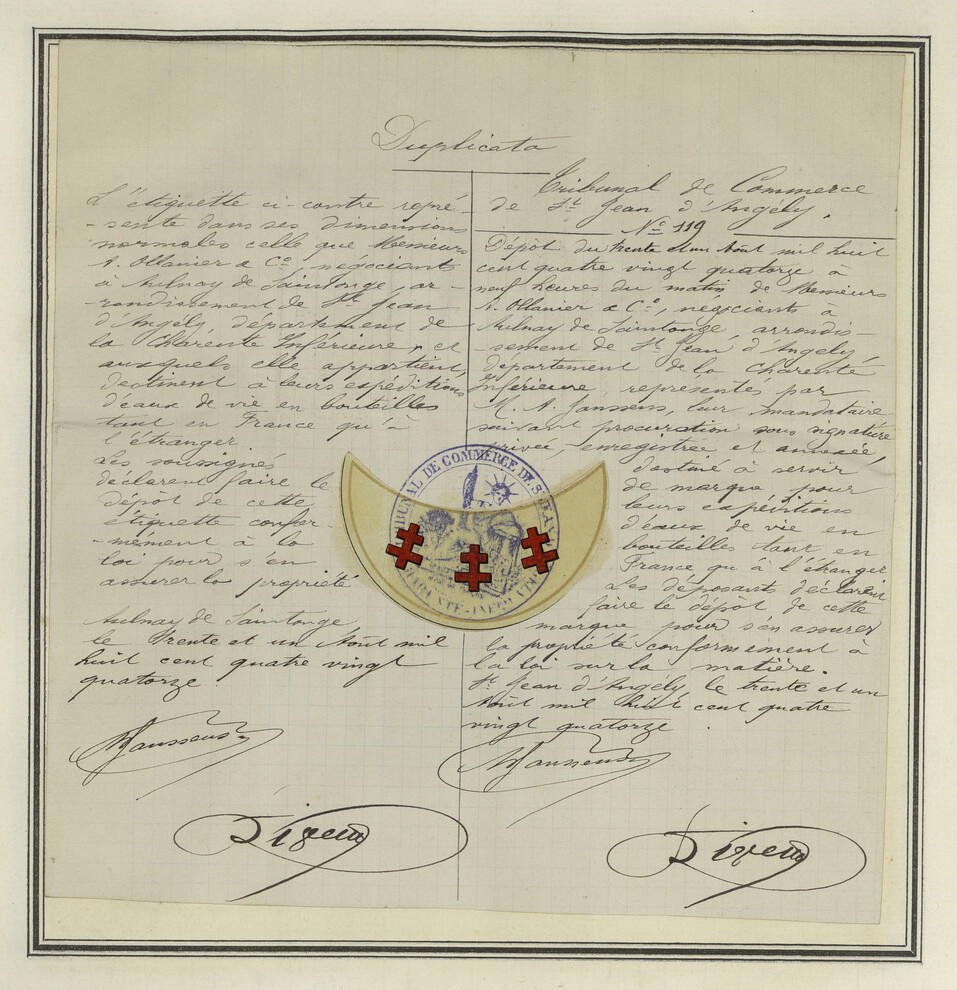 Duplicata
L'étiquette ci-contre repré-
-sente dans ses dimensions
normales celle que Messieurs
A. Ollanier & Cie, négociants
à Aulnay de Saintonge, ar-
-rondissement de St Jean
d'Angély, département de
la Charente Inférieure, et
auxquels elle appartient,
destinent à leurs expéditions
d'eaux de vie en bouteilles
tant en France qu'à
l'étranger
Les soussignés
déclarent faire le
dépôt de cette
étiquette confor-
-mément à la
loi pour s'en
assurer la propriété
Aulnay de Saintonge,
le trente et un Août mil
huit cent quatre vingt
quatorze.
AJanssens
Tribunal de Commerce
de St Jean d'Angély.
No 119
Dépôt du trente et un Août mil huit
cent quatre vingt quatorze à
neuf heures du matin de Messieurs
A. Ollanier & Cie, négociants à
Aulnay de Saintonge, arrondis-
-sement de St Jean d'Angély,
département de la Charente
Inférieure représentés par
M. A. Janssens, leur mandataire
suivant procuration sous signature
privée, enregistrée et annexée,
destiné à servir
de marque pour
leurs expéditions
d'eaux de vie en
bouteilles tant en
France qu'à l'étranger
Les déposants déclarent
faire le dépôt de cette
marque pour s'en assurer
la propriété conformement à
la loi sur la matière.
St Jean d'Angély, le trente et un
Août mil huit cent quatre
vingt quatorze.
AJanssens
TRIBUNAL DE COMMERCE DE ST JEAN
CHARENTE-INFRE